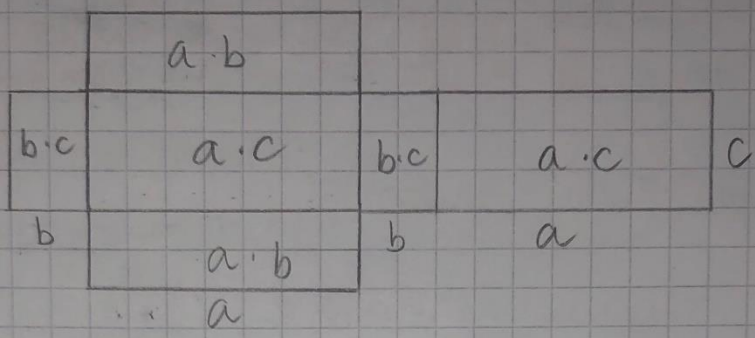 a · b
b · c a · c b · c a · c c
b b a
a · b
a